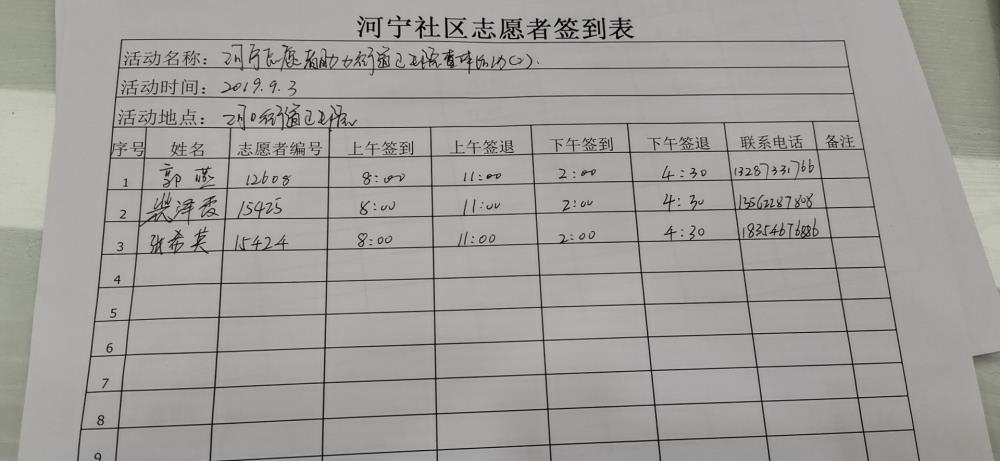 河宁社区志愿者签到表
活动名称: 河宁志愿者助力街道卫生院查体活动(二).
活动时间: 2019.9.3
活动地点: 河口街道卫生院
序号 姓名 志愿者编号 上午签到 上午签退 下午签到 下午签退 联系电话 备注
1 郭燕 12608 8:00 11:00 2:00 4:30 13287331766
2 裴泽霞 15425 8:00 11:00 2:00 4:30 13562287808
3 张希英 15424 8:00 11:00 2:00 4:30
4
5
6
7
8
9